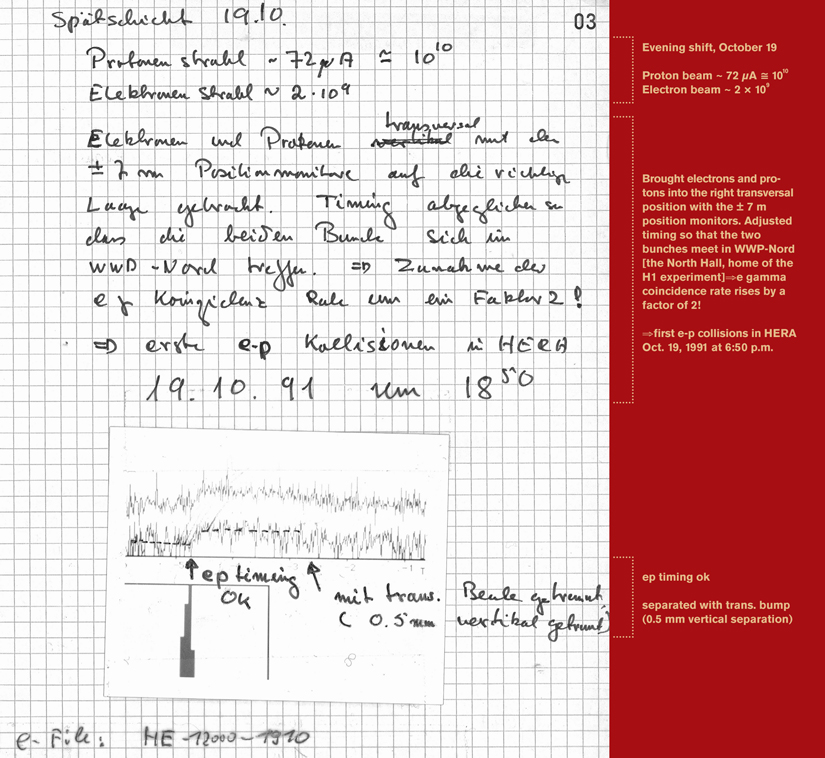 Spätschicht 19.10.
03
Protonen strahl ~ 72 µA ≅ 10¹⁰
Elektronen Strahl ~ 2·10⁹
transversal
Elektronen und Protonen vertikal mit den
± 7 m Positionmonitore auf die richtige
Lage gebracht. Timing abgeglichen so
dass die beiden Bunche sich im
WWD-Nord treffen. ⇒ Zunahme der
e γ Koinzidenz Rate um ein Faktor 2!
⇒ erste e-p Kollisionen in HERA
19.10.91 um 18⁵⁰
ep timing
OK
mit trans. Beule getrennt
( 0.5 mm vertikal getrennt)
e-File: HE-12000-1910
Evening shift, October 19
Proton beam ~ 72 µA ≅ 10¹⁰
Electron beam ~ 2 × 10⁹
Brought electrons and pro-
tons into the right transversal
position with the ± 7 m
position monitors. Adjusted
timing so that the two
bunches meet in WWP-Nord
[the North Hall, home of the
H1 experiment]⇒e gamma
coincidence rate rises by a
factor of 2!
⇒first e-p collisions in HERA
Oct. 19, 1991 at 6:50 p.m.
ep timing ok
separated with trans. bump
(0.5 mm vertical separation)